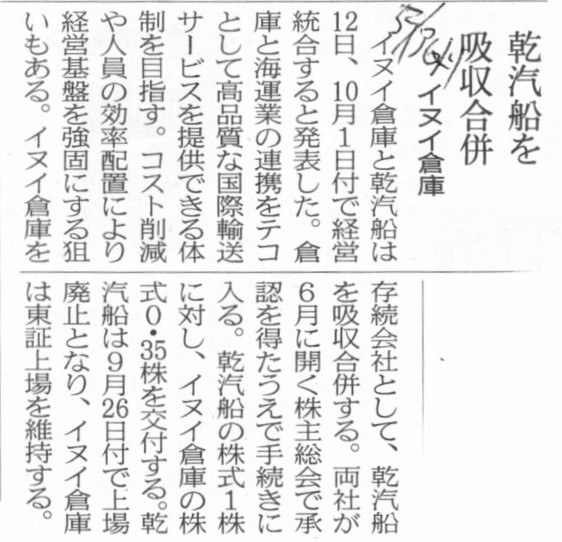 乾汽船を
吸収合併
イヌイ倉庫
イヌイ倉庫と乾汽船は
12日、10月1日付で経営
統合すると発表した。倉
庫と海運業の連携をテコ
として高品質な国際輸送
サービスを提供できる体
制を目指す。コスト削減
や人員の効率配置により
経営基盤を強固にする狙
いもある。イヌイ倉庫を
存続会社として、乾汽船
を吸収合併する。両社が
6月に開く株主総会で承
認を得たうえで手続きに
入る。乾汽船の株式1株
に対し、イヌイ倉庫の株
式0・35株を交付する。乾
汽船は9月26日付で上場
廃止となり、イヌイ倉庫
は東証上場を維持する。